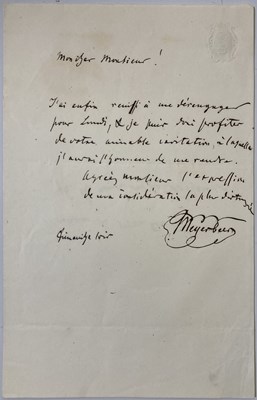 Mon cher Monsieur!
J'ai enfin reussi à me dérengager
pour Lundi, & je puis donc profiter
de votre aimable invitation, à laquelle
j'aurai l'honneur de me rendre.
Agréez monsieur l'expression
de ma considération la plus distinguée
Meyerbeer
Dimanche soir